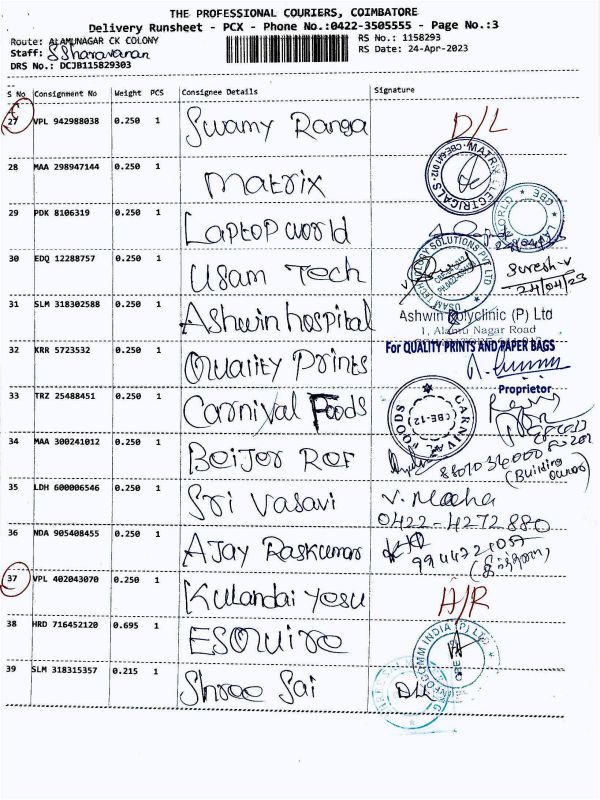 THE PROFESSIONAL COURIERS, COIMBATORE
Delivery Runsheet - PCX - Phone No.:0422-3505555 - Page No.:3
Route: ALAMUNAGAR CK COLONY
RS No.: 1158293
Staff: S Sharavanan
RS Date: 24-Apr-2023
DRS No.: DCJB115829303
S No Consignment No Weight PCS Consignee Details Signature
27 VPL 942988038 0.250 1 Swamy Ranga D/L
28 MAA 298947144 0.250 1 Matrix
MATRIX ELECTRICALS
29 PDK 8106319 0.250 1 Laptop world
CBE
30 EDQ 12288757 0.250 1 Usam Tech
Suresh-V
24/04/23
31 SLM 318302588 0.250 1 Ashwin hospital
Ashwin Polyclinic (P) Ltd
1, Alamu Nagar Road
32 KRR 5723532 0.250 1 Quality Prints
For QUALITY PRINTS AND PAPER BAGS
Proprietor
33 TRZ 25488451 0.250 1 Carnival Foods
CARNIVAL FOODS
CBE-12
34 MAA 300241012 0.250 1 Beijer Ref
(Building
owner)
35 LDH 600006546 0.250 1 Sri Vasavi
0422-4272880
36 NDA 905408455 0.250 1 Ajay Raskumar
37 VPL 402043070 0.250 1 Kulandai Yesu A/R
38 HRD 716452120 0.695 1 Esquire
39 SLM 318315357 0.215 1 Shree Sai